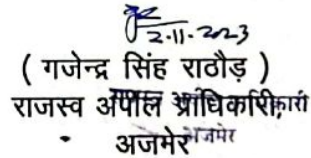 2-11-2023
( गजेन्द्र सिंह राठौड़ )
राजस्व अपील प्राधिकारी,
अजमेर
अजमेर